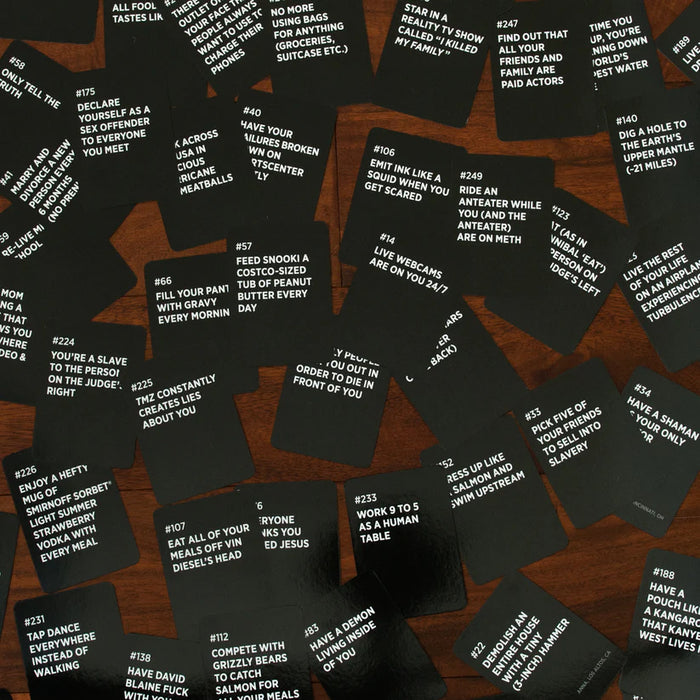 ALL FOOL
TASTES LIK
OUTLET O
YOUR FACE TH
PEOPLE ALWAYS
WANT TO USE TO
CHARGE THEIR
PHONES
NO MORE
USING BAGS
FOR ANYTHING
(GROCERIES,
SUITCASE ETC.)
STAR IN A
REALITY TV SHOW
CALLED "I KILLED
MY FAMILY"
#247
FIND OUT THAT
ALL YOUR
FRIENDS AND
FAMILY ARE
PAID ACTORS
TIME YOU
UP, YOU'RE
NING DOWN
ORLD'S
EST WATER
#189
LIVE
#58
ONLY TELL THE
TRUTH
#175
DECLARE
YOURSELF AS A
SEX OFFENDER
TO EVERYONE
YOU MEET
#41
MARRY AND
DIVORCE A NEW
PERSON EVERY
6 MONTHS
(NO PREN
K ACROSS
USA IN
CIOUS
RRICANE
MEATBALLS
#40
HAVE YOUR
AILURES BROKEN
WN ON
RTSCENTER
LY
#106
EMIT INK LIKE A
SQUID WHEN YOU
GET SCARED
#249
RIDE AN
ANTEATER WHILE
YOU (AND THE
ANTEATER)
ARE ON METH
#140
DIG A HOLE TO
THE EARTH'S
UPPER MANTLE
(~21 MILES)
#123
AT (AS IN
NNIBAL 'EAT)
PERSON ON
DGE'S LEFT
59
RE-LIVE MI
HOOL
#57
FEED SNOOKI A
COSTCO-SIZED
TUB OF PEANUT
BUTTER EVERY
DAY
#14
LIVE WEBCAMS
ARE ON YOU 24/7
LIVE THE REST
OF YOUR LIFE
ON AN AIRPLAN
EXPERIENCING
TURBULENC
#66
FILL YOUR PANT
WITH GRAVY
EVERY MORNIN
MOM
ING A
T THAT
WS YOU
WHERE
DEO &
#224
YOU'RE A SLAVE
TO THE PERSON
ON THE JUDGE'
RIGHT
ARS
ER
BACK)
#225
TMZ CONSTANTLY
CREATES LIES
ABOUT YOU
Y PEOPLE
YOU OUT IN
ORDER TO DIE IN
FRONT OF YOU
#33
PICK FIVE OF
YOUR FRIENDS
TO SELL INTO
SLAVERY
#34
HAVE A SHAMAN
YOUR ONLY
OR
INCINNATI, OH
#226
ENJOY A HEFTY
MUG OF
SMIRNOFF SORBET®
LIGHT SUMMER
STRAWBERRY
VODKA WITH
EVERY MEAL
52
RESS UP LIKE
SALMON AND
SWIM UPSTREAM
#107
EAT ALL OF YOUR
MEALS OFF VIN
DIESEL'S HEAD
6
ERYONE
NKS YOU
ED JESUS
#233
WORK 9 TO 5
AS A HUMAN
TABLE
#231
TAP DANCE
EVERYWHERE
INSTEAD OF
WALKING
#138
HAVE DAVID
BLAINE FUCK
WITH YOU
#112
COMPETE WITH
GRIZZLY BEARS
TO CATCH
SALMON FOR
ALL YOUR MEALS
#83
HAVE A DEMON
LIVING INSIDE
OF YOU
#22
DEMOLISH AN
ENTIRE HOUSE
WITH A TINY
(5-INCH) HAMMER
ANNA, LOS ALTOS, CA
#188
HAVE A
POUCH LIK
A KANGARO
THAT KAN
WEST LIVES I